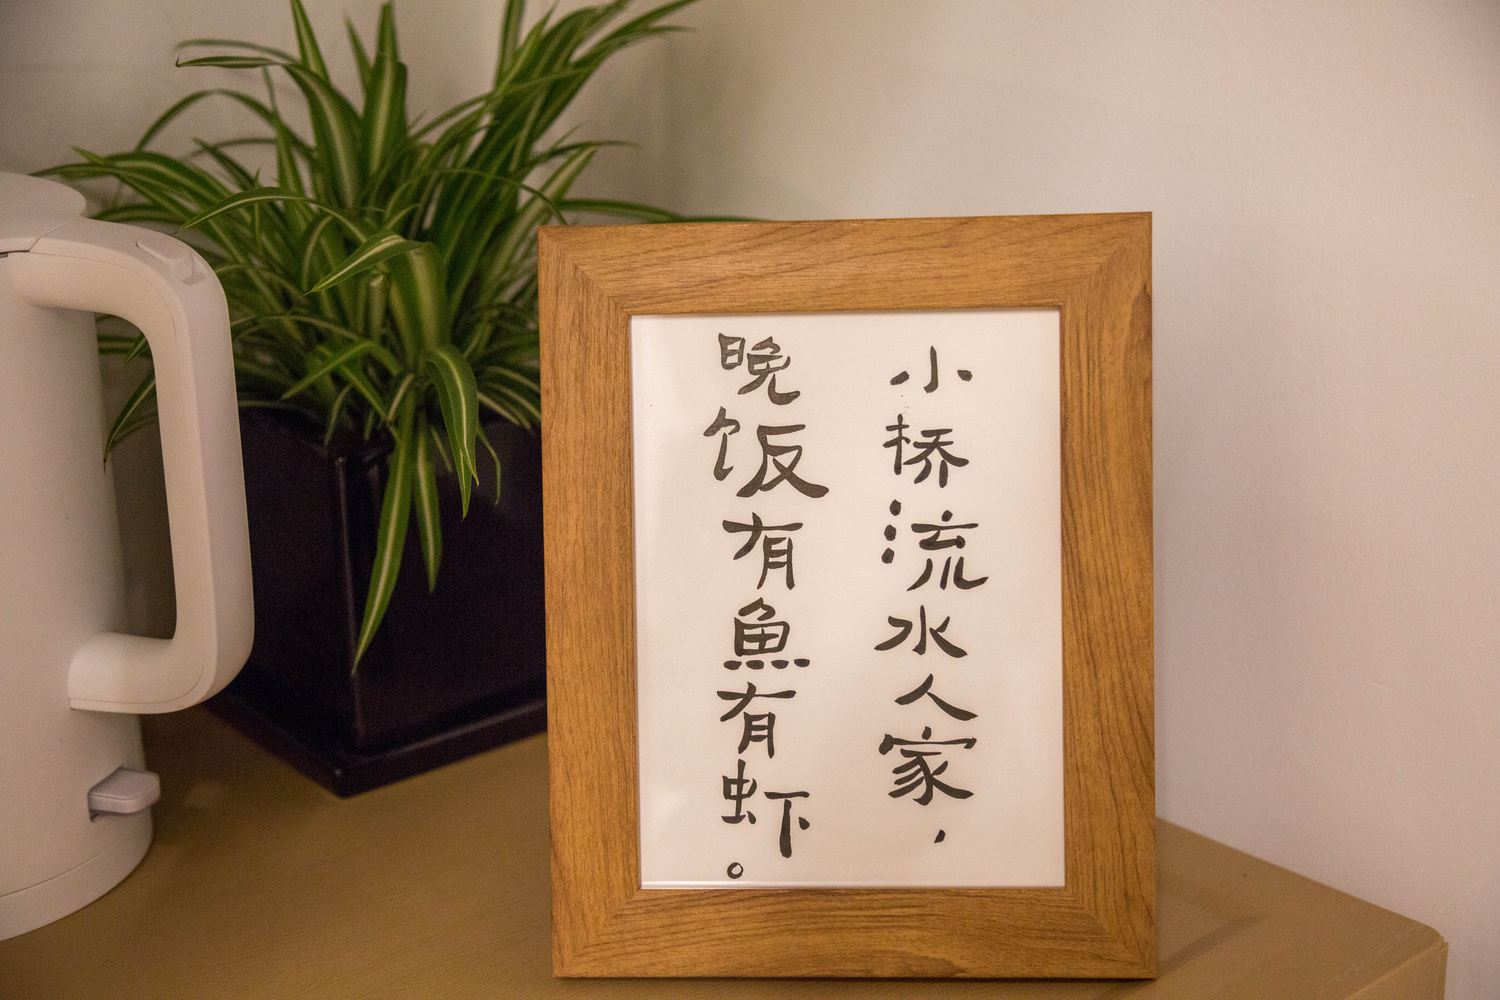 小桥流水人家，
晚饭有魚有虾。